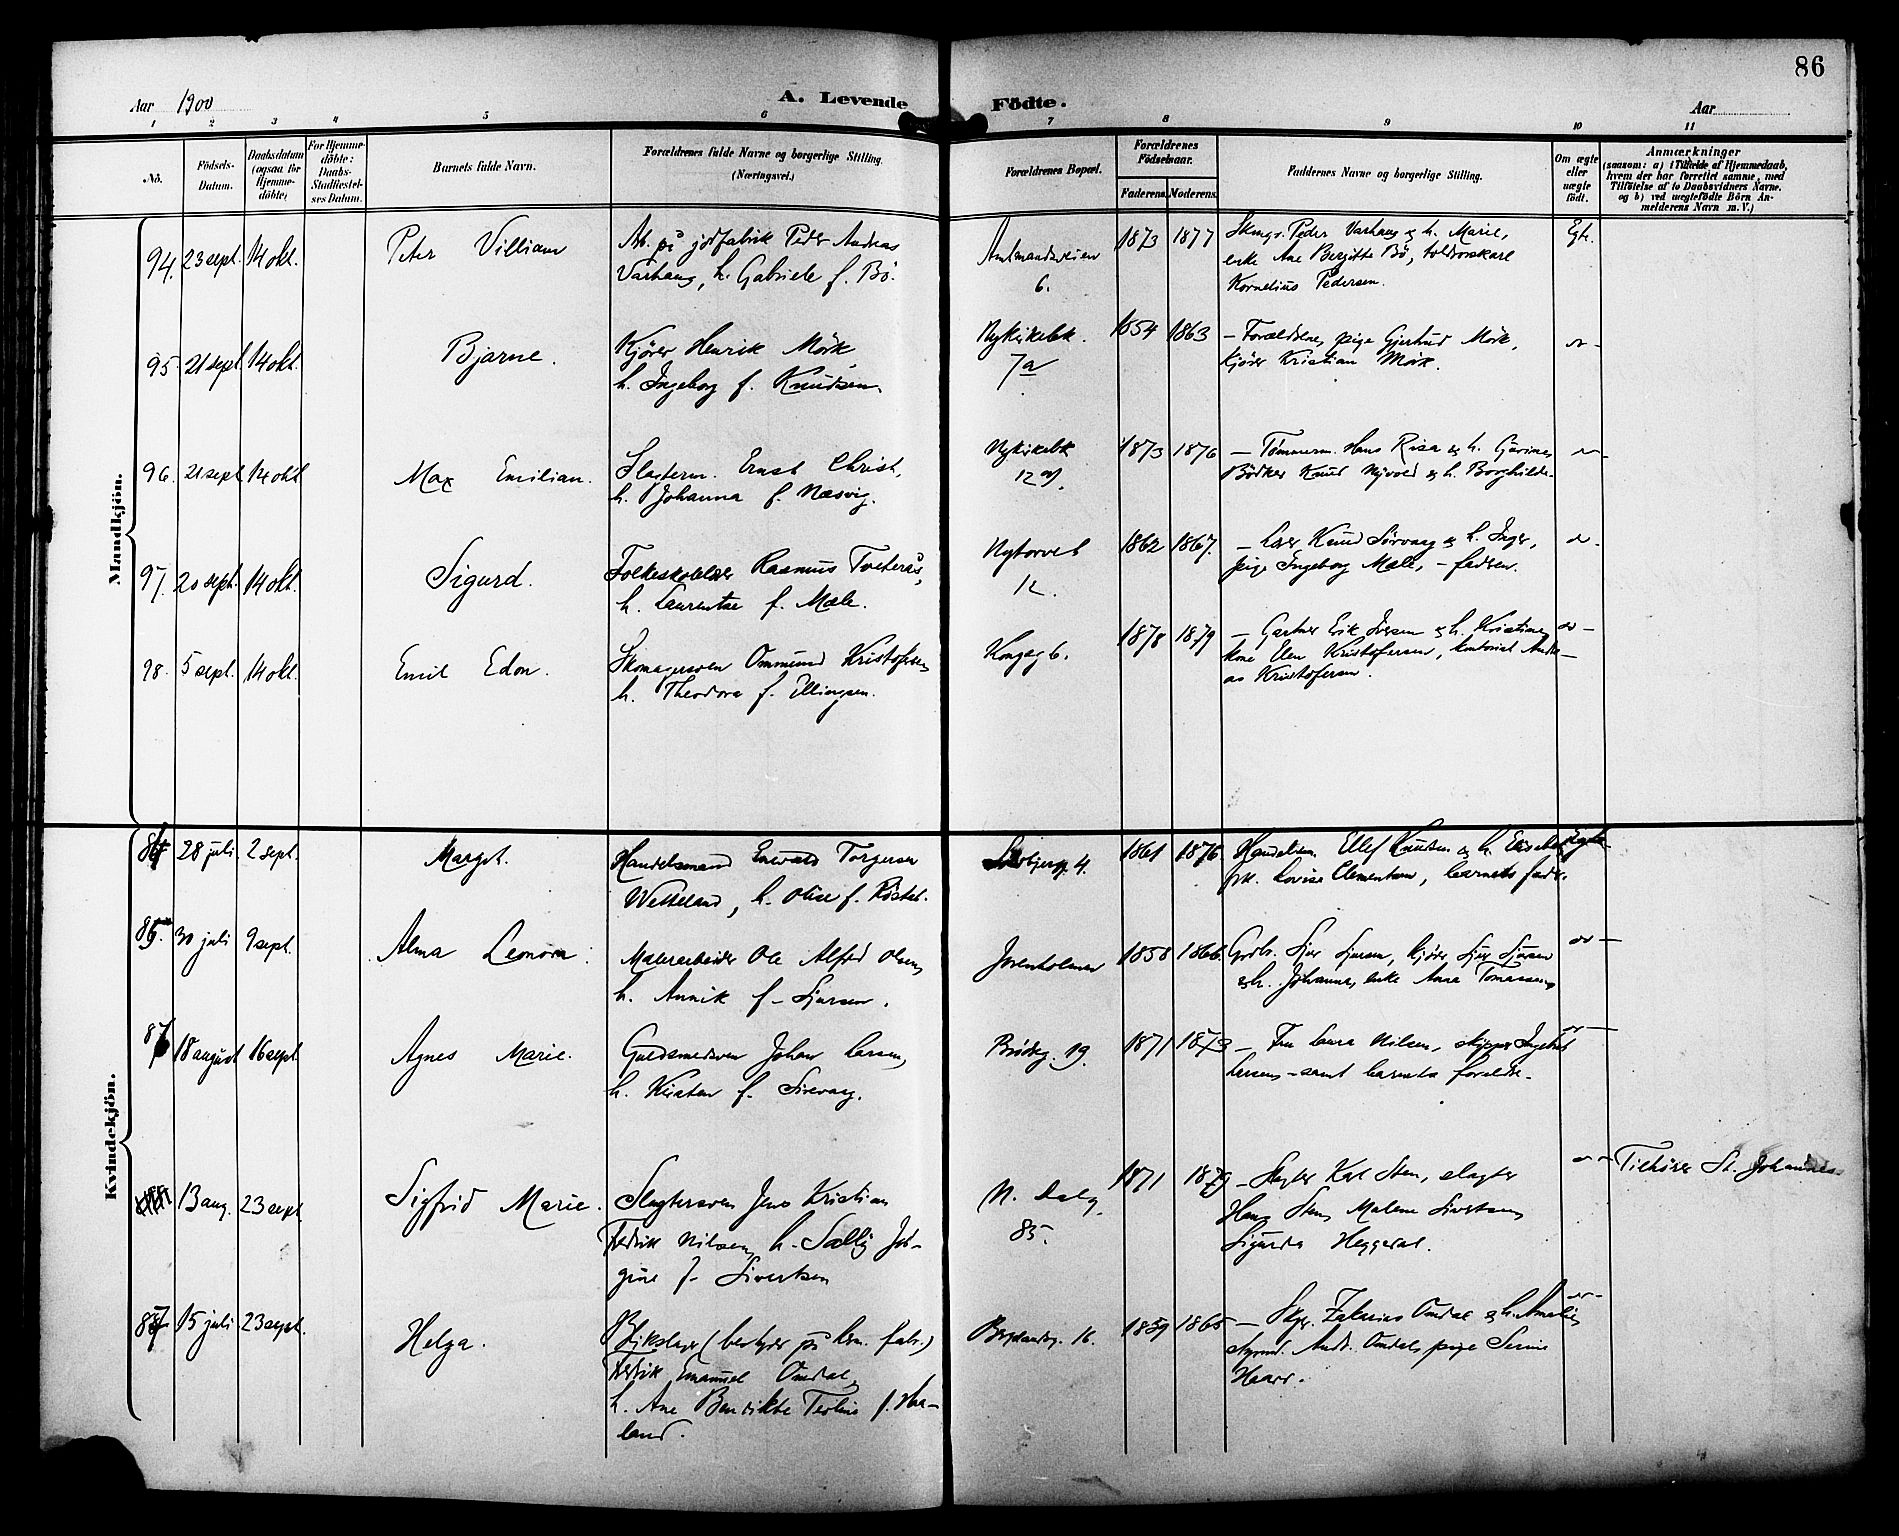 86
Aar 1900
A. Levende Födte.
Aar
1 2 3 4 5 6 7 8 9 10 11
No.
Födsels-Datum.
Daabsdatum (ogsaa for Hjemme-döbte)
For Hjemme-döbte: Daabs-Stadfæstel-ses Datum.
Barnets fulde Navn.
Forældrenes fulde Navne og borgerlige Stilling.
(Næringsvei.)
Forældrenes Bopæl.
Forældrenes Födselsaar.
Faderens. Moderens.
Faddernes Navne og borgerlige Stilling.
Om ægte eller uægte födt.
Anmærkninger
(saasom: a) i Tilfælde af Hjemmedaab,
hvem der har forrettet samme, med
Tilföielse af to Daabsvidners Navne.
og b) ved uægtefödte Börn An-
melderens Navn m. V.)
Mandkjön.
94. 23 sept. 14 okt. Peter Villiam
Arb. på jodfabrik Peder Andreas
Varhaug, h. Gabriele f. Bö.
Amtmandsveien
6.
1873 1877
Peder Varhaug & h. Marie,
enke Ane Bergitte Bö,
Kornelius Pedersen.
Egte.
95. 21 sept. 14 okt. Bjarne.
Kjörer Henrik Mörk
h. Ingeborg f. Knudsen.
Nykirkebk.
7a
1854 1863
– Forældrene, pige Gjertrud Mörk,
kjörer Kristian Mörk.
96. 21 sept. 14 okt. Max Emilian.
Slagterm. Ernst Christ,
h. Johanna f. Næsvig.
Nykirkebk
12
1873 1876
– Tömmerm. Hans Risa & h. Gurine,
Bödker Knud Nyvold & h. Borghilde.
97. 20 sept. 14 okt. Sigurd.
Folkeskolelærer Rasmus Tveterås,
h. Laurentse f. Mæle.
Nytorvet
12.
1862 1867.
– Lærer Knud Sörvaag & h. Inger,
pige Ingeborg Mæle, – fadren.
98. 5 sept. 14 okt. Emil Edon.
Skomagersven Ommund Kristofersen
h. Theodora f. Ellingsen.
Kongsg 6.
1878 1879
– Gartner Erik Iversen & h. Kristine,
kone Elen Kristofersen, kontorist Andre-
as Kristofersen.
Kvindekjön.
84 28 juli 2 sept. Margit.
Handelsmand Enevald Torgersen
Welleland, h. Olise f.
4.
1861 1876
Handelsm. Ellef Knudsen & h.
frk. Lovise Clementsen, barnets fader.
Egte
85. 30 juli 9 sept. Alma Leonora.
Malerarbeider Ole Alfred Olsen,
h. Annik f. Sjursen.
Jorenholmen
1858 1866.
Sjur Sjursen, kjörer Sjur Sjursen
& h. Johanne, enke Anna Tomassen
86 18 august 16 sept. Agnes Marie.
Guldsmedsven Johan Larsen,
h. Kirsten f. Sirevaag.
Brödeg. 19.
1871 1873
– Fru Laura Nilsen, skipper Ingebret
Larsen – samt barnets forældre.
13 aug. 23 sept. Sigfrid Marie.
Slagtersven Jens Kristian
Fredrik Nilsen, h. Sally Jör-
gine f. Sivertsen
N. Dalg.
85.
1871 1879
– Slagter Karl Sten, slagter
Hans Sten, Malene Sivertsen,
Sigurda Heggedal.
Tilhörer St. Johannes
87 15 juli 23 sept. Helga.
Blikslager (bestyrer på herm. fab.)
Fredrik Emanuel Omdal,
h. Ane Bendikte Teoline f. Ha-
land.
Bergelandsg. 16.
1859 1865
– Skpr. Zakarias Omdal & h. Amalie,
styrmd. Andr. Omdal, pige Serine
Haarr.